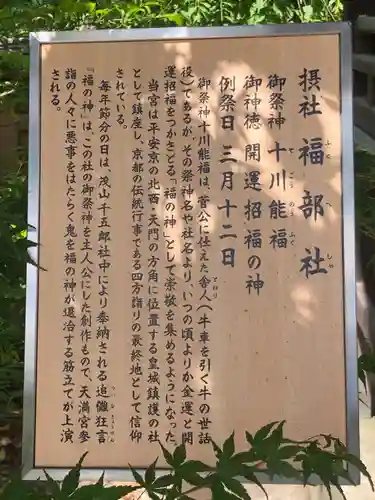 摂社 福部社
ふくべしゃ
御祭神 十川能福
そごうのうふく
御神徳 開運招福の神
例祭日 三月十二日
御祭神十川能福は、菅公に仕えた舎人（牛車を引く牛の世話
とねり
役）であるが、その祭神名や社名より、いつの頃よりか金運と開
運招福をつかさどる「福の神」として崇敬を集めるようになった。
当宮は平安京の北西・天門の方角に位置する皇城鎮護の社
として鎮座し、京都の伝統行事である四方詣りの最終地として信仰
されている。
毎年節分の日は、茂山千五郎社中により奉納される追儺狂言
ついなきょうげん
「福の神」は、この社の御祭神を主人公にした創作もので、天満宮参
詣の人々に悪事をはたらく鬼を福の神が退治する筋立てが上演
される。